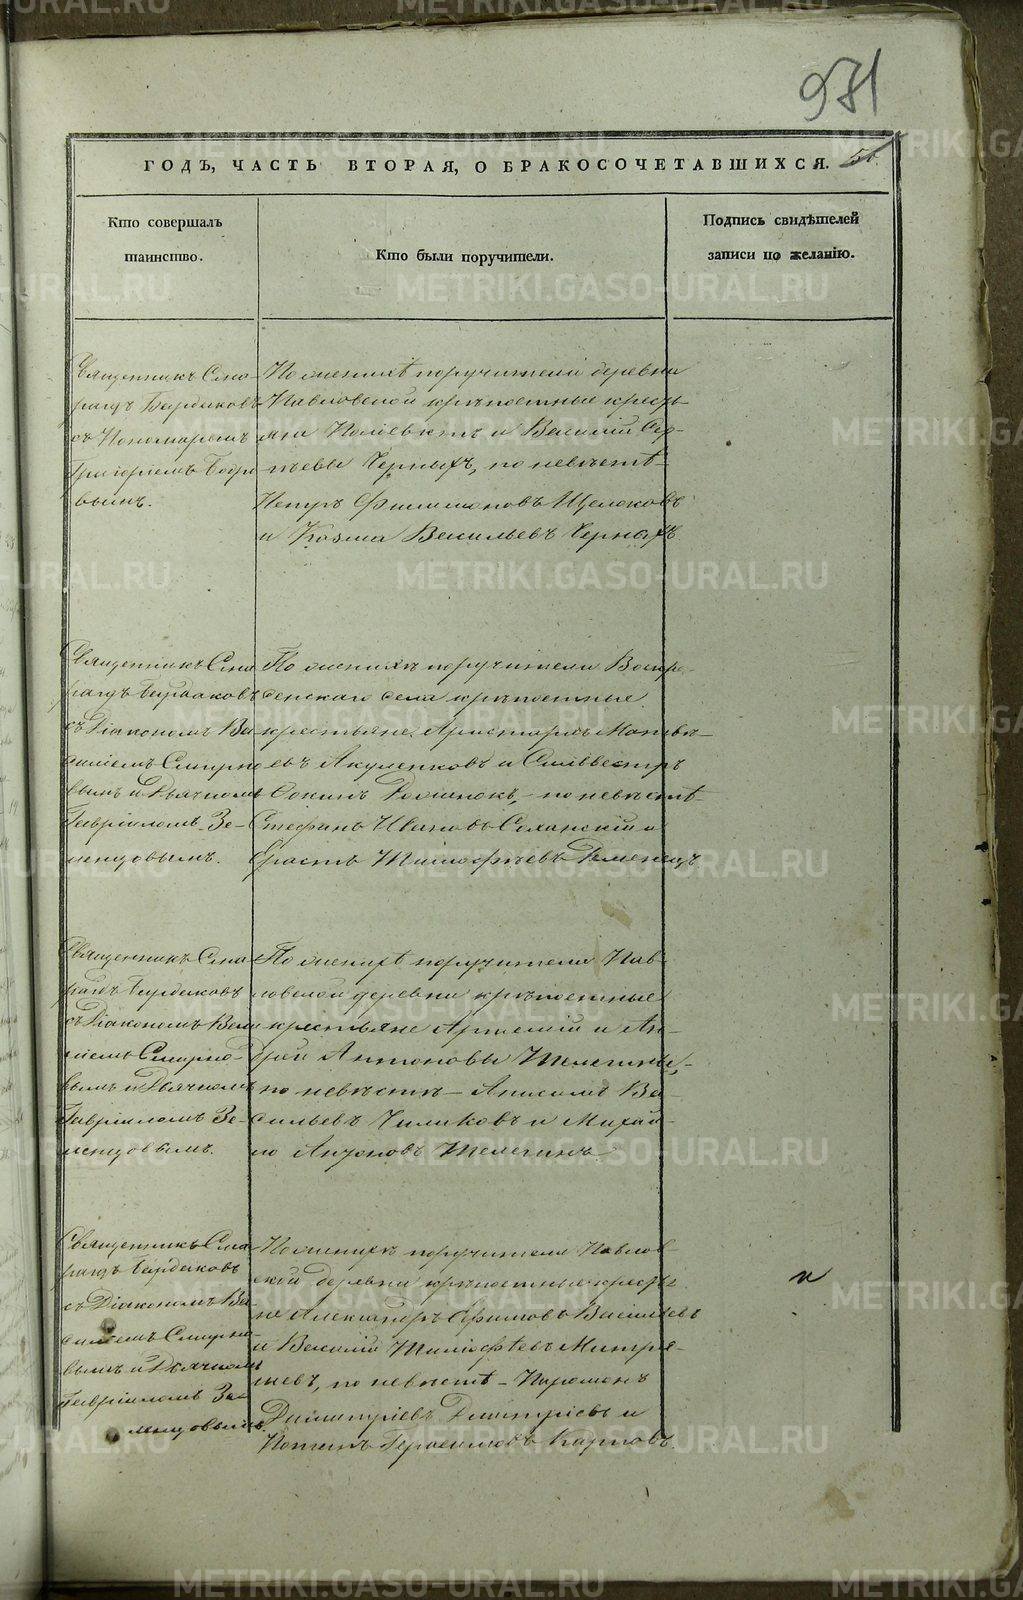 971
ГОДЪ, ЧАСТЬ ВТОРАЯ, О БРАКОСОЧЕТАВШИХСЯ.
Кто совершалъ таинство.
Кто были поручители.
Подпись свидѣтелей записи по желанію.
Священникъ Сма-
рагдъ Бирдюковъ
съ Пономаремъ
Григоріемъ
По женихѣ поручители деревни
Павловской крѣпостные кресть-
яне и Василій Сер-
гѣевы Черныхъ, по невѣстѣ
Петръ Филимоновъ Щелоковъ
и Козма Васильевъ Черныхъ
Священникъ Сма
рагдъ
съ Діакономъ Ва
силіемъ Смирно
вымъ и Дьячкомъ
Гавріиломъ Зе-
менцовымъ.
По женихѣ поручители Воскре-
сенскаго села крѣпостные
крестьяне Аристархъ Матвѣ-
евъ Акуленковъ и Сильвестръ
Фокинъ по невѣстѣ
Стефанъ Ивановъ и
Ерастъ Тимофѣевъ
Священникъ Сма
рагдъ
съ Діакономъ Васи
ліемъ Смирно-
вымъ и Дьячкомъ
Гавріиломъ Зе-
менцовымъ.
По женихѣ поручители Пав-
ловской деревни крѣпостные
крестьяне Артемій и Ан-
дрей Антоновы Шелегины,-
по невѣстѣ - Анисимъ Ва-
сильевъ Чиликовъ и Михай-
ло Антоновъ Шелегинъ
Священникъ Сма
рагдъ
съ Діакономъ Ва
силіемъ Смирно-
вымъ и Дьячкомъ
Гавріиломъ Зе-
менцовымъ.
По женихѣ поручители Павлов-
ской деревни крѣпостные кресть
не Александръ Ефимовъ Васильевъ
и Василій Тимофѣевъ Митря-
шевъ, по невѣстѣ - Парамонъ
Димитріевъ Дмитріевъ и
Потапъ Герасимовъ Карповъ.
METRIKI.GASO-URAL.RU